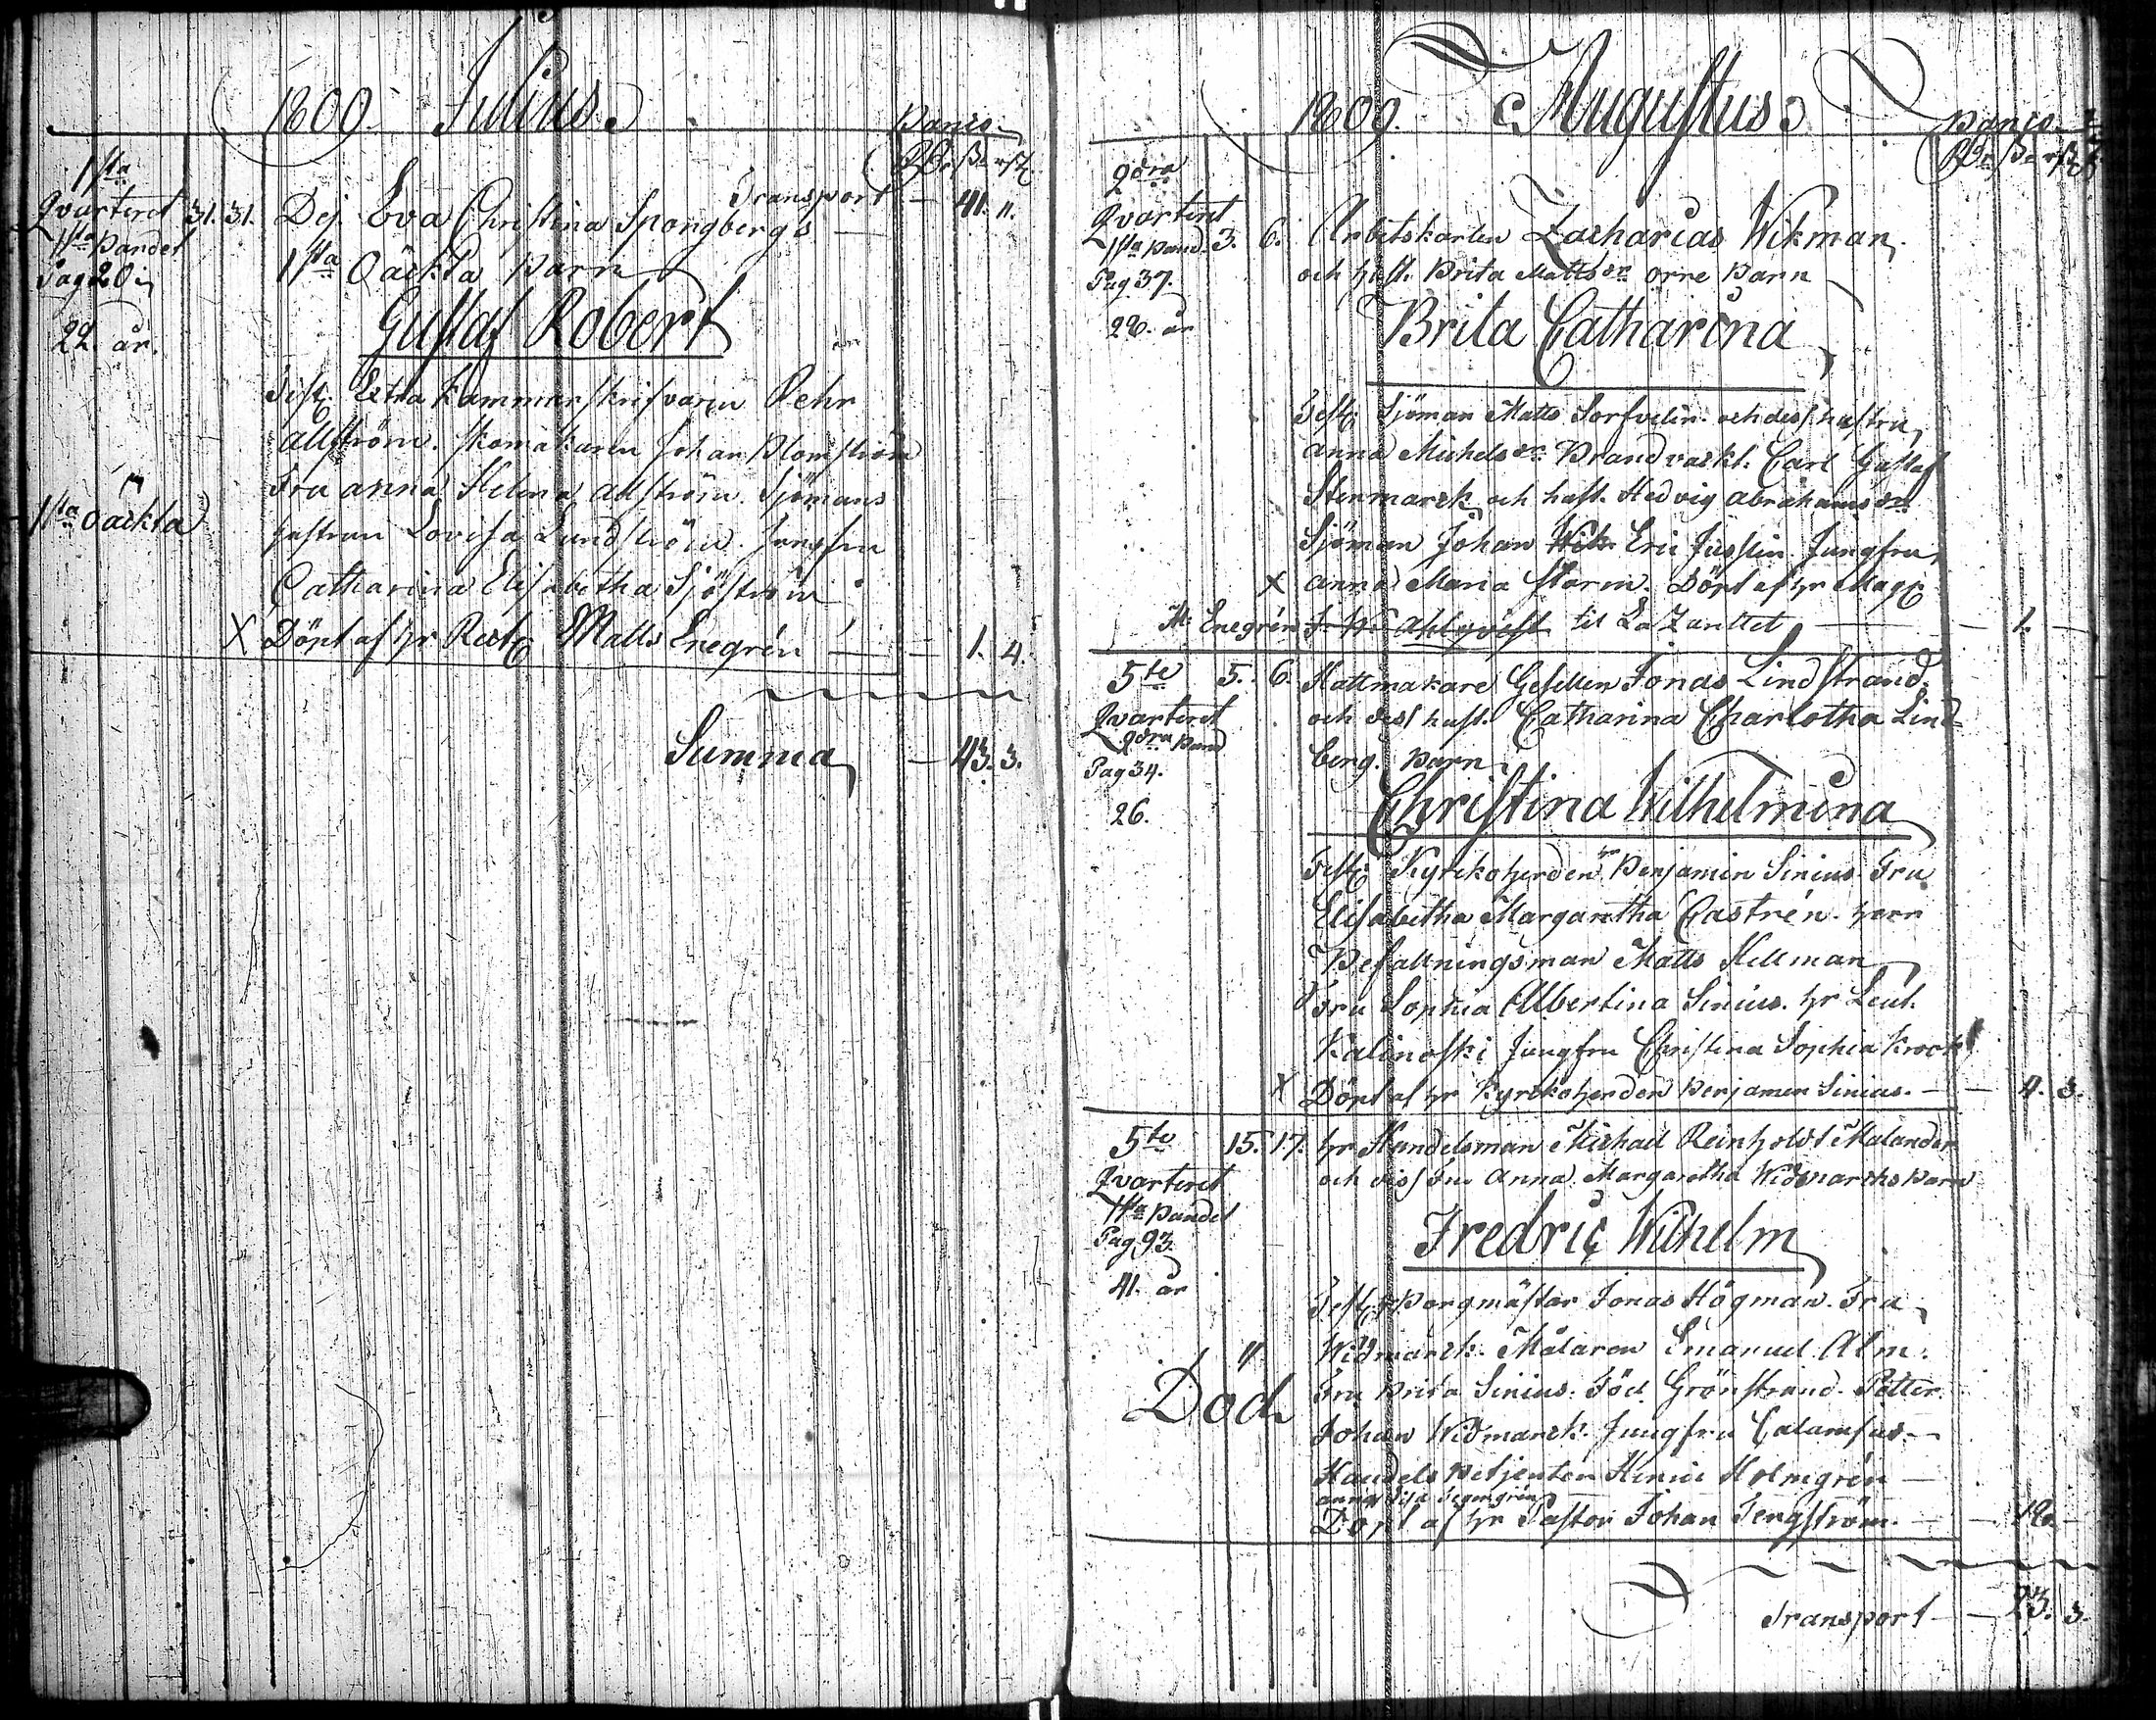 1809. Julius.
Banco
RD. ß. rst.
Transport — 41. 11.
1sta
Qvarteret 31. 31. Dej. Eva Christina Spongbergs
1sta Bandet
Pag 20
1sta Oäckta Barn
22. år.
Gustaf Robert
Test. Extra Kammarskrifvaren Pehr
Allström. Skomakaren Johan Blomström
Fru Anna Helena Allström. Sjömans
1sta Oäckta
hustrun Lovisa Lundström. Jungfru
Catharina Elisabetha Sjöström
X Döpt af hr Rect. Matts Enegrén — — 1. 4.
Summa — 43. 3.
1809. Augustus
Banco
RD. ß. rst.
2dra
Qvarteret
1sta Band. 3. 6. Arbetskarlen Zacharias Wikman
Pag 37. och hust. Brita Mattsdr Orre Barn
28. år
Brita Catharina
Test. Sjöman Matts Sorfvelin och dess hustru
Anna Michelsdr. Brandvackt. Carl Gustaf
Stenmarck och hust. Hedvig Abrahamsdr
Sjöman Johan Wik Eric Jusslin Jungfru
X Anna Maria Storm. Döpt af hr Mag.
M. Enegrén J. H. Ahlqvist til LaZarettet — 1. —
5te 5. 6. Hattmakare Gesellen Jonas Lindstrand
Qvarteret och dess hust. Catharina Charlotha Lind-
2dra Band
Pag 34. berg. Barn
26. Christina Wilhelmina
Test. Kyrkoherden hr Benjamin Sinius Fru
Elisabetha Margaretha Castrén. herr
Befallningsman Matts Hellman
Fru Sophia Albertina Sinius. hr Leut.
Kalinofski Jungfru Christina Sophia Krook
X Döpt af hr Kyrkoherden Benjamin Sinius. — — 4. 3.
5te 15. 17. hr Handelsman Michael Reinholdt Malander
Qvarteret och dess Fru Anna Margaretha Widmarcks Barn
1sta Bandet
Pag 93.
Fredric Wilhelm
41. år
Test. Borgmästar Jonas Högman. Fru
Widmarck. Målaren Emanuel Alm.
Död. Fru Brita Sinius. Föd Grönstrand. Petter
Johan Widmarck. Jungfru Calamnius. —
Handels Betjenten Henric Holmgrén —
Döpt af hr Pastor Johan Tengström. — — 18. —
Transport — — 23. 3.